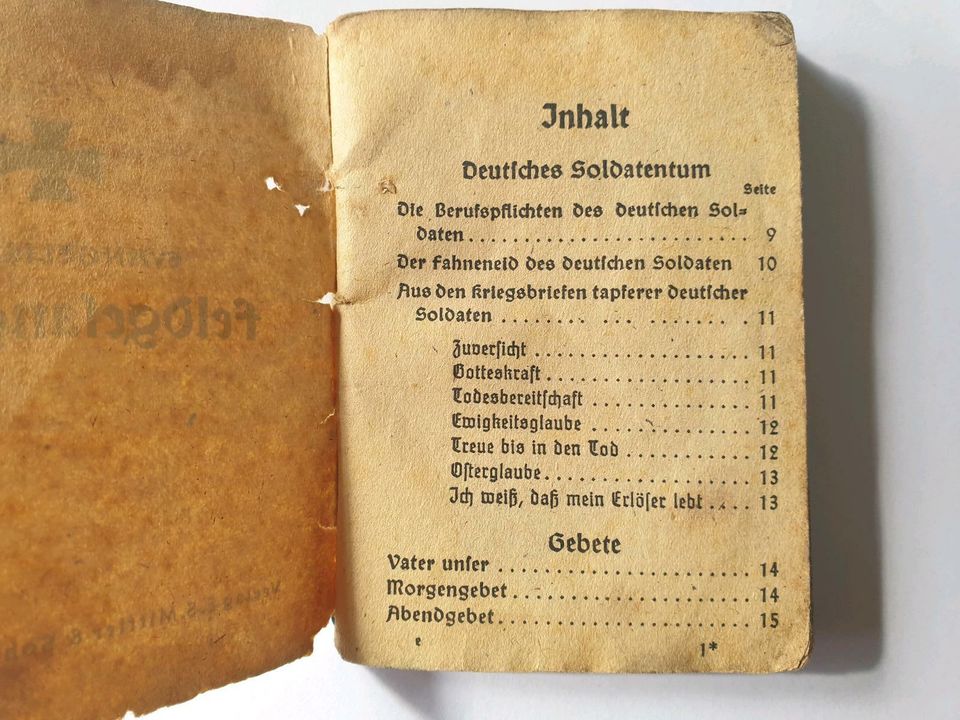 Inhalt
Deutſches Soldatentum
Seite
Die Berufspflichten des deutſchen Sol=
daten . . . . . . . . . . . . . . . . . . . . . . . . . 9
Der Fahneneid des deutſchen Soldaten 10
Aus den Kriegsbriefen tapferer deutſcher
Soldaten . . . . . . . . . . . . . . . . . . . 11
Zuverſicht . . . . . . . . . . . . . . . . . . . . 11
Gotteskraft . . . . . . . . . . . . . . . . . . . 11
Todesbereitſchaft . . . . . . . . . . . . . . . 11
Ewigkeitsglaube . . . . . . . . . . . . . . . . 12
Treue bis in den Tod . . . . . . . . . . . . 12
Oſterglaube . . . . . . . . . . . . . . . . . . . 13
Ich weiß, daß mein Erlöſer lebt . . . . 13
Gebete
Vater unſer . . . . . . . . . . . . . . . . . . . . . . . 14
Morgengebet . . . . . . . . . . . . . . . . . . . . . . 14
Abendgebet . . . . . . . . . . . . . . . . . . . . . . . 15
e 1*